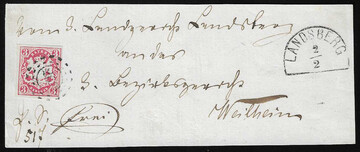 Vom k. Landgericht Landsberg
an das
k. Bezirksgericht
Weilheim
LANDSBERG
2/2
3 3
3 3
frei